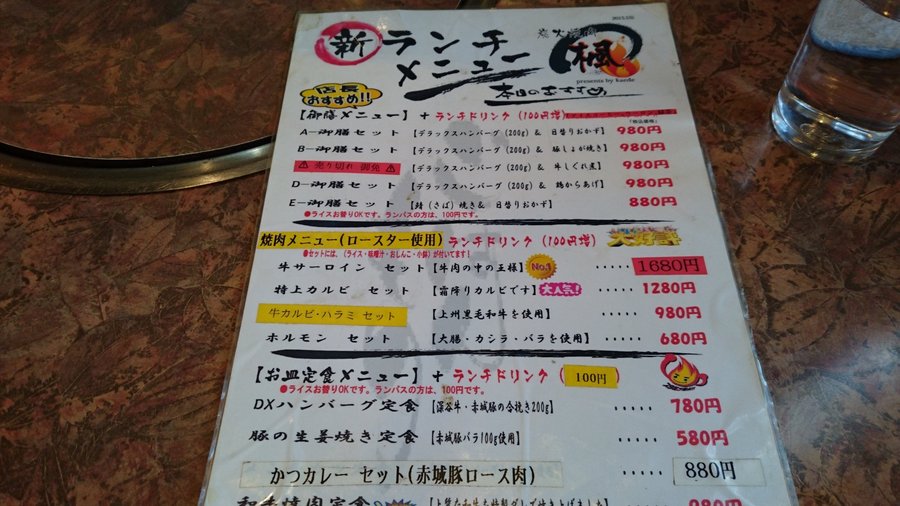 新 ランチメニュー
炭火焼肉 楓
presents by Kaede
本日のおすすめ
店長おすすめ!!
【御膳メニュー】+ ランチドリンク (100円増)
A-御膳セット 【デラックスハンバーグ (200g) & 日替りおかず】 980円
B-御膳セット 【デラックスハンバーグ (200g) & 豚しょが焼き】 980円
⚠ 売り切れ 御免 ⚠ 【デラックスハンバーグ (200g) & 牛しぐれ煮】 980円
D-御膳セット 【デラックスハンバーグ (200g) & 鶏からあげ】 980円
E-御膳セット 【鯖 (さば) 焼き& 日替りおかず】 880円
●ライスお替りOKです。ランパスの方は、100円です。
焼肉メニュー(ロースター使用) ランチドリンク (100円増) 大好評
●セットには、(ライス・味噌汁・おしんこ・小鉢)が付いてます!
牛サーロイン セット 【牛肉の中の王様】 No.1 ・・・・・ 1680円
特上カルビ セット 【霜降りカルビです】 大人気! ・・・・・ 1280円
牛カルビ・ハラミ セット 【上州黒毛和牛を使用】 ・・・・・ 980円
ホルモン セット 【大腸・カシラ・バラを使用】 ・・・・・ 680円
【お皿定食メニュー】+ ランチドリンク ( 100円
●ライスお替りOKです。ランパスの方は、100円です。
DXハンバーグ定食 【深谷牛・赤城豚の合挽き200g】 ・・・・・ 780円
豚の生姜焼き定食 【赤城豚バラ100g使用】 ・・・・・ 580円
かつカレー セット(赤城豚ロース肉) ・・・・・ 880円